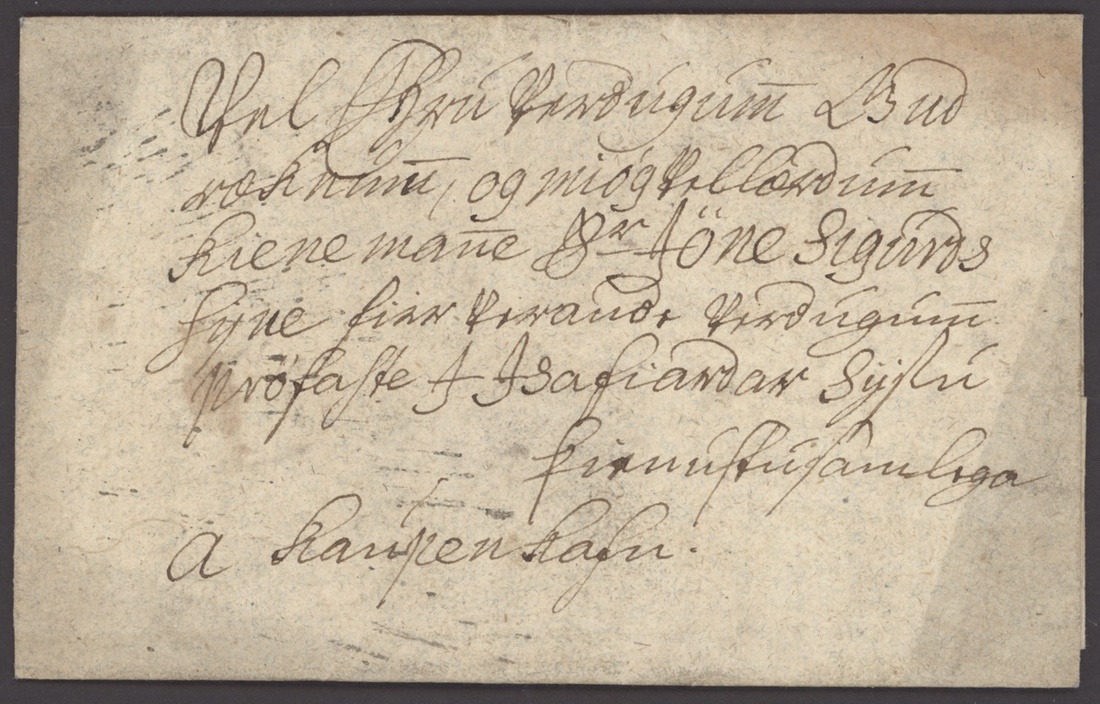 Vel Ehru Verdugum̅ Gud
ræknum̅, og miög Vellærdum̅
Kieneman̅e Sr Jöne Sigurds
syne fier Verande Verdugum̅
pröfaste J Jsafiardar Sýslu
þienustusamlega
A Kaupenhafn.